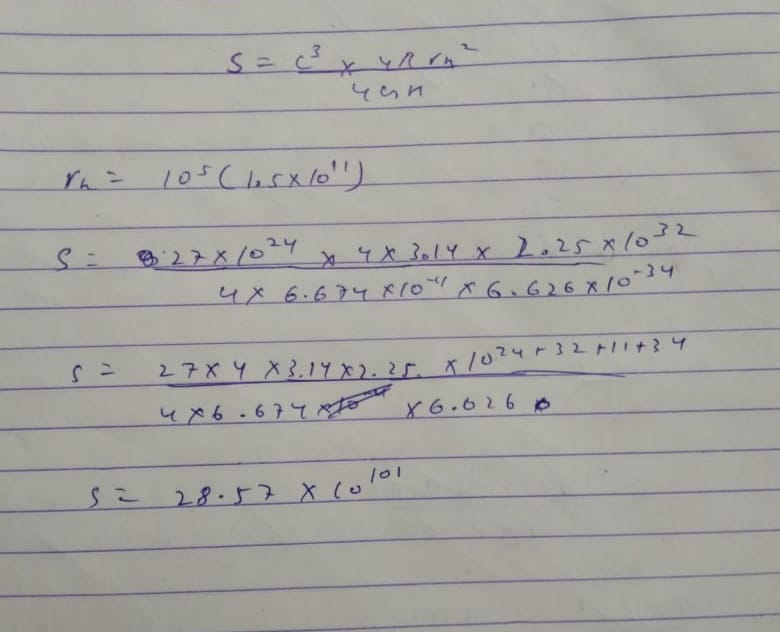 S = c³ × 4π rₕ²
4Għ
rₕ = 10⁵(1.5×10¹¹)
S = 27×10²⁴ × 4×3.14 × 2.25 ×10³²
4× 6.674 ×10⁻¹¹ × 6.626×10⁻³⁴
S = 27×4 ×3.14×2.25 × 10²⁴⁺³²⁺¹¹⁺³⁴
4×6.674 ×6.626
S = 28.57 × 10¹⁰¹